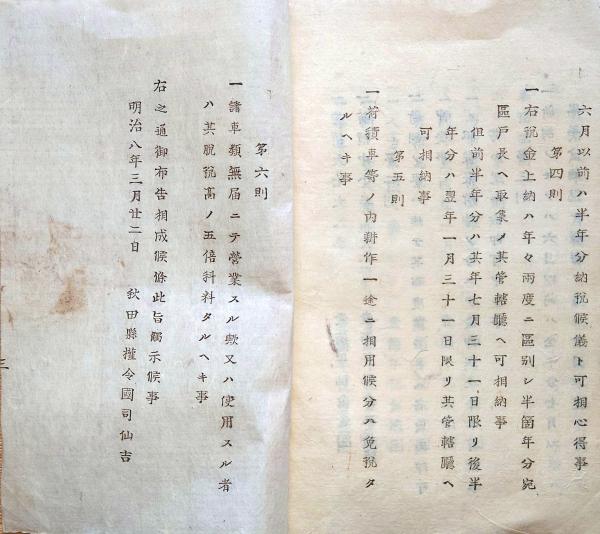 六月以前ハ半年分納税候儀ト可相心得事
第四則
一右税金上納ハ年々兩度ニ區別シ半箇年分宛
區戸長ヘ取集メ其管轄廳ヘ可相納事
但前半年分ハ其年七月三十一日限リ後半
年分ハ翌年一月三十一日限リ其管轄廳ヘ
可相納事
第五則
一荷積車等ノ内耕作一途ニ相用候分ハ免税タ
ルヘキ事
第六則
一諸車類無届ニテ營業スル歟又ハ使用スル者
ハ其脱税高ノ五倍科料タルヘキ事
右之通御布告相成候條此旨觸示候事
明治八年三月廿二日 秋田縣權令國司仙吉
三